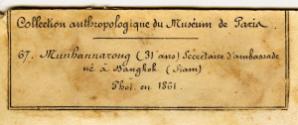 Collection anthropologique du Muséum de Paris.
67. Munhannarouq (31 ans) Secrétaire d'ambassade
né à Bangkok (Siam)
Phot. en 1861.